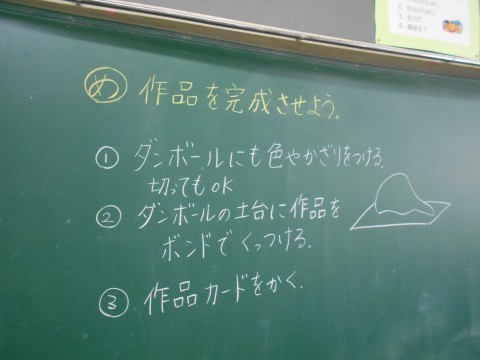 め 作品を完成させよう。
① ダンボールにも色やかざりをつける。
切ってもOK
② ダンボールの土台に作品を
ボンドでくっつける。
③ 作品カードをかく。